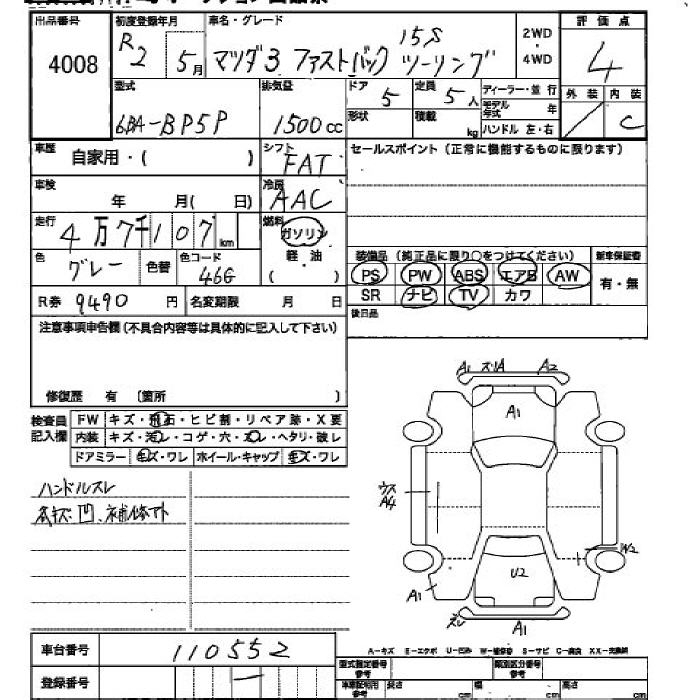 出品番号 初度登録年月 車名・グレード 評価点
4008 R2 5月 マツダ3 ファストバック 15S ツーリング 2WD・4WD 4
型式 排気量 ドア 5 定員 5人 ディーラー・並 行 外装 内装
6BA-BP5P 1500cc 形状 積載 kg モデル年式 年 ハンドル 左・右 / C
車歴 自家用・( ) シフト FAT セールスポイント(正常に機能するものに限ります)
車検 年 月( 日) 冷房 AAC
走行 4万7千107km 燃料 ガソリン
色 グレー 色替 色コード 46G 軽・油 ( )
装備品(純正品に限り○をつけてください) 新車保証書
PS PW ABS エアB AW 有・無
SR ナビ TV カワ
R券 9490円 名変期限 月 日
後日品
注意事項申告欄(不具合内容等は具体的に記入して下さい)
修復歴 有 (箇所 )
検査員記入欄 FW キズ・飛石・ヒビ割・リペア跡・X要
内装 キズ・汚レ・コゲ・穴・スレ・ヘタリ・破レ
ドアミラー キズ・ワレ ホイール・キャップ キズ・ワレ
ハンドルスレ
凹、補修マト
A1 スリA A2
A1
ウス A4
W2
U2
A1
スレ A1
車台番号 110552
登録番号 一
A-キズ E-エクボ U-凹み W-補修跡 S-サビ C-腐食 XX-交換済
型式指定番号 参考 類別区分番号 参考
長さ cm 幅 cm 高さ cm